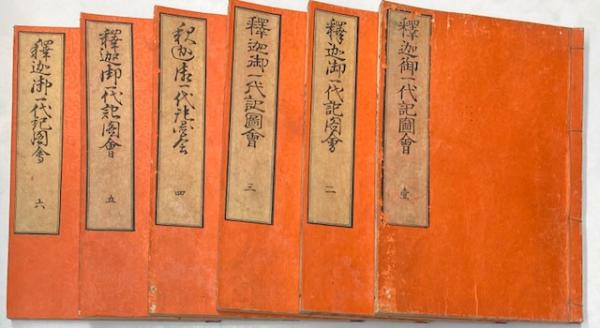 釋迦御一代記圖會
壹
釋迦御一代記圖會
二
釋迦御一代記圖會
三
釈迦御一代記圖会
四
釋迦御一代記圖會
五
釋迦御一代記圖會
六